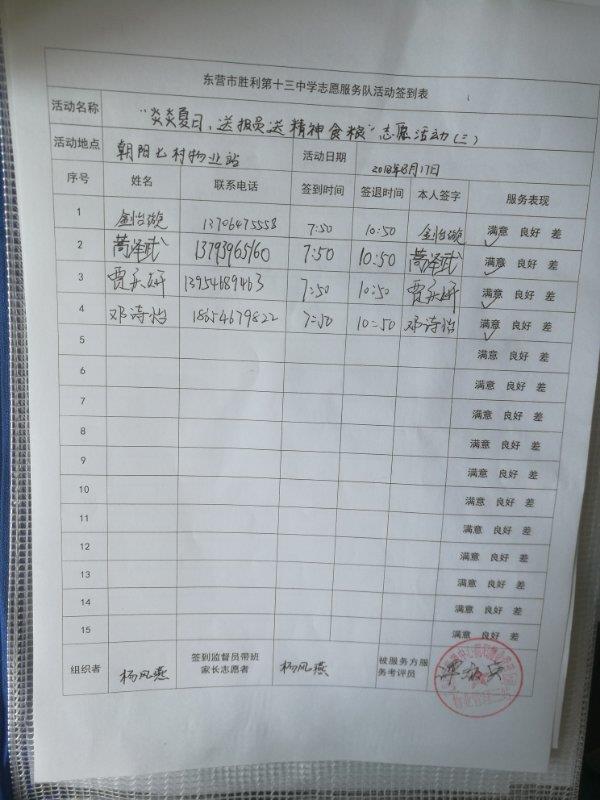 东营市胜利第十三中学志愿服务队活动签到表
活动名称 "炎炎夏日，送报员送精神食粮"志愿活动(三)
活动地点 朝阳七村物业站 活动日期 2018年8月17日
序号 姓名 联系电话 签到时间 签退时间 本人签字 服务表现
1 金怡璇 13706475558 7:50 10:50 金怡璇 满意 良好 差
2 蔄泽武 13793965160 7:50 10:50 蔄泽武 满意 良好 差
3 贾永妍 13954689463 7:50 10:50 贾永妍 满意 良好 差
4 邓诗怡 18654679822 7:50 10:50 邓诗怡 满意 良好 差
5 满意 良好 差
6 满意 良好 差
7 满意 良好 差
8 满意 良好 差
9 满意 良好 差
10 满意 良好 差
11 满意 良好 差
12 满意 良好 差
13 满意 良好 差
14 满意 良好 差
15 满意 良好 差
组织者 杨凤燕 签到监督员带班 杨凤燕 被服务方服
家长志愿者 务考评员